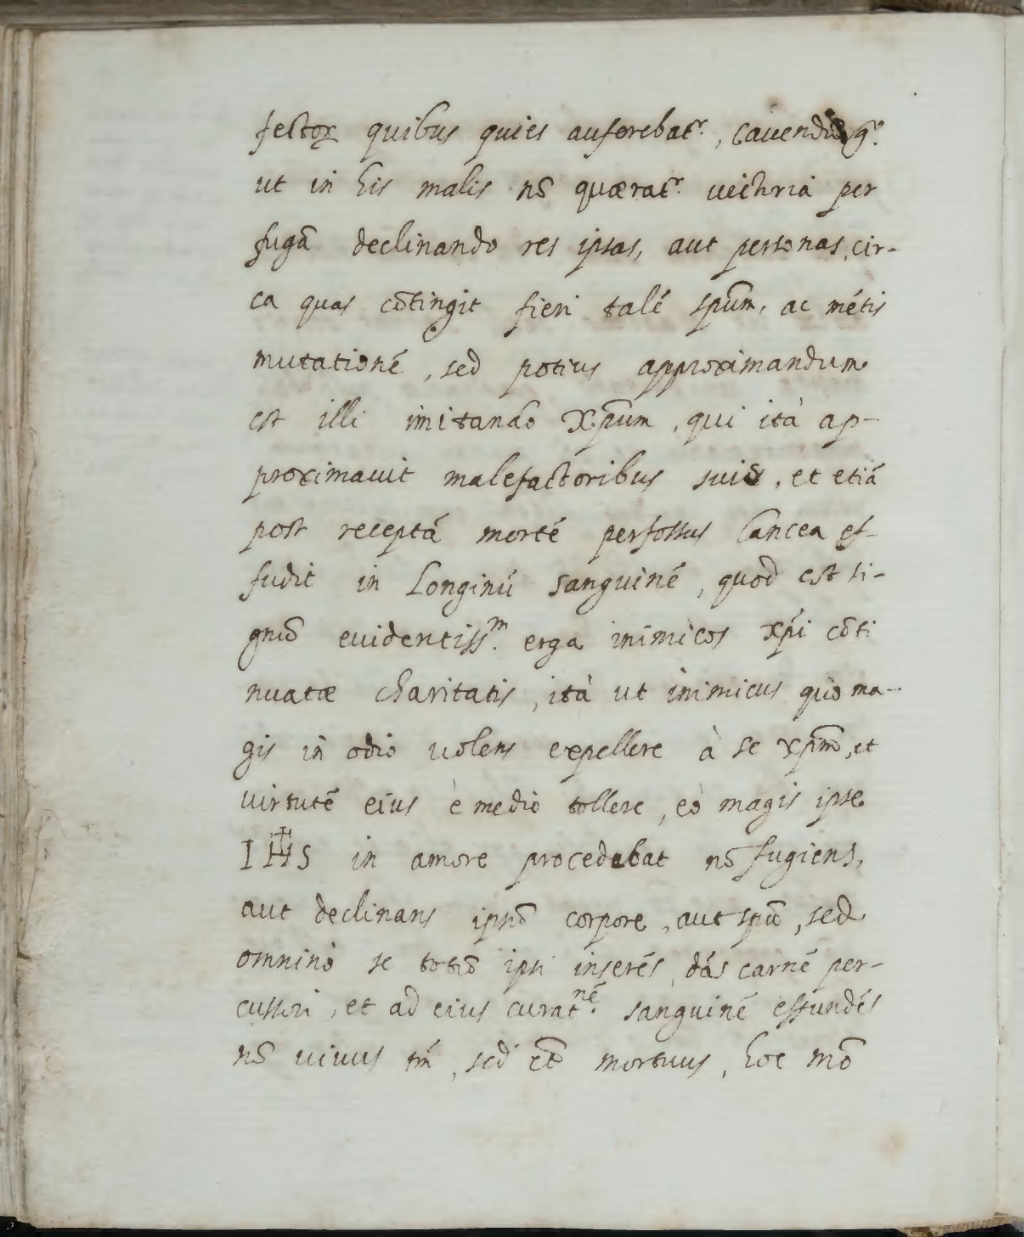 fectoꝝ quibus quies auferebatʳ., cauendũ gᵒ.
ut in his malis nõ quæratʳ. uictoria per
fugã declinando res ipsas, aut personas, cir-
ca quas cõtingit fieri talé spũm, ac métis
mutationé, sed potius approximandum
est illi imitando Xp̃um, qui ità ap-
proximauit malefactoribus suis, et etiã
post receptá morté perfossus lancea ef-
fudit in Longinũ sanguiné, quod est si-
gnũ euidentissᵐ. erga inimicos xp̃i cõti
nuatæ charitatis, ità ut inimicus quò ma-
gis in odio uolens expellere à se xp̃m, et
uirtuté eius è medio tollere, eò magis ipse
IHS in amore procedebat nõ fugiens,
aut declinans ipsũ corpore, aut spũ, sed
omninò se totũ ipsi inserés, dás carné per-
cussori, et ad eius curatⁿᵉ́. sanguiné effundés
nõ uiuus tm̃, sed et̃ mortuus, hoc mõ